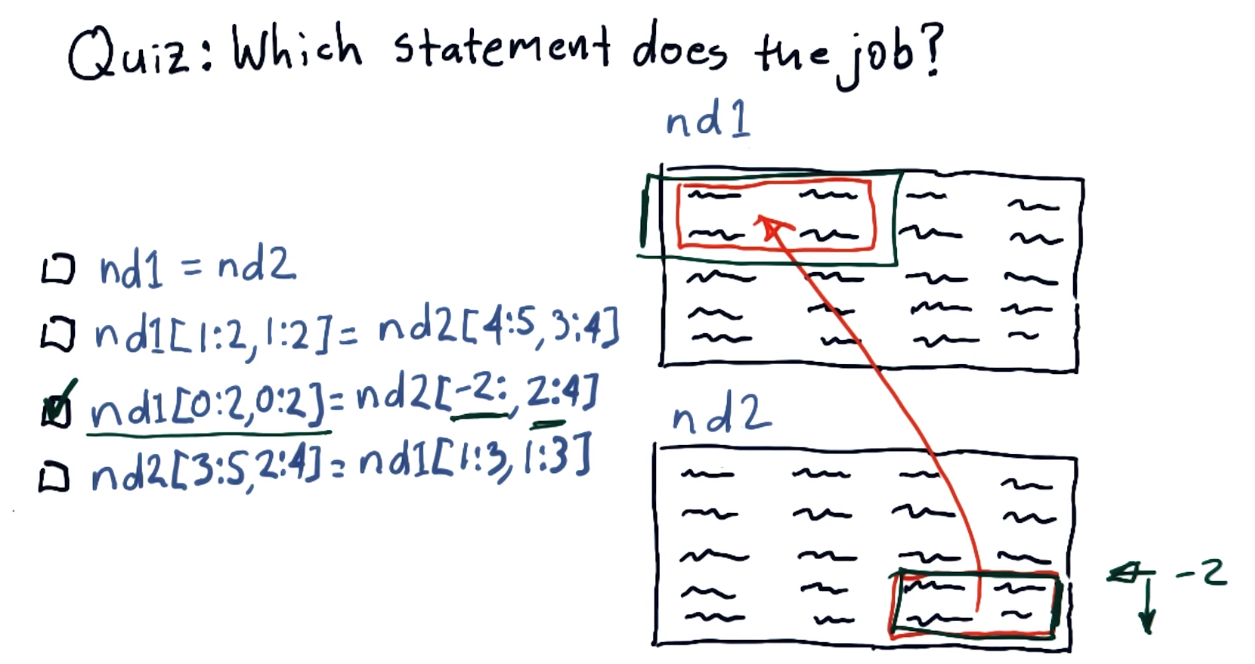 Quiz: Which statement does the job?
nd1
nd1 = nd2
nd1[1:2,1:2]= nd2[4:5,3:4]
nd1[0:2,0:2]= nd2[-2:,2:4]
nd2[3:5,2:4]= nd1[1:3,1:3]
nd2
-2